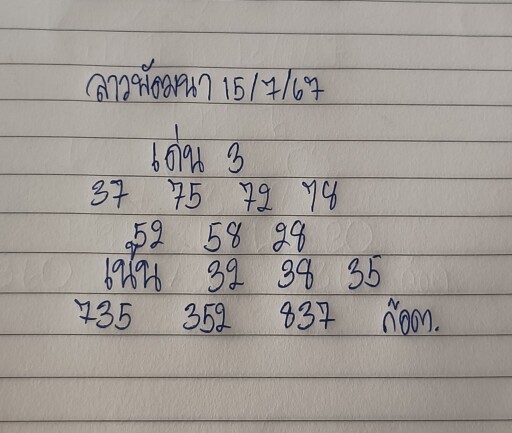 ลาวพัฒนา 15/7/67
เด่น 3
37 75 72 78
52 58 28
เน้น 32 38 35
735 352 837 ก๊อต.